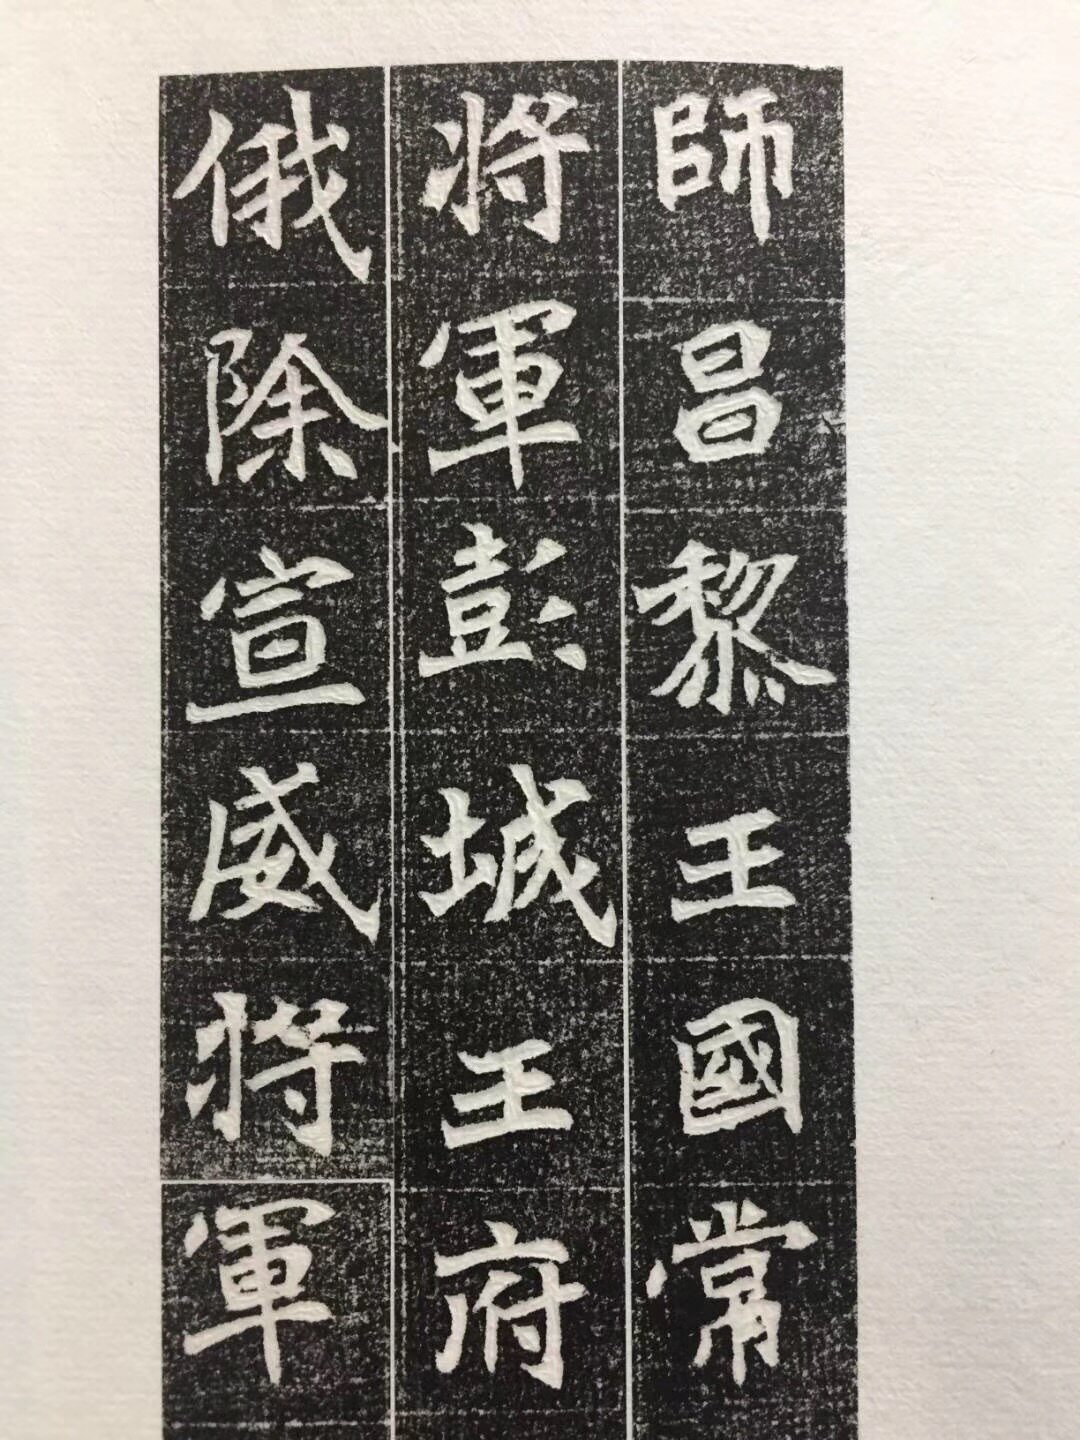 師昌黎王國常
将軍彭城王府
俄除宣威将軍